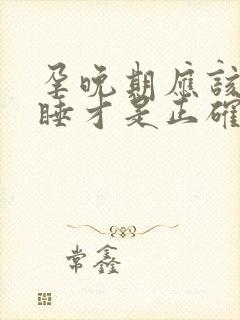 孕晚期應該
睡才是正確
常鑫